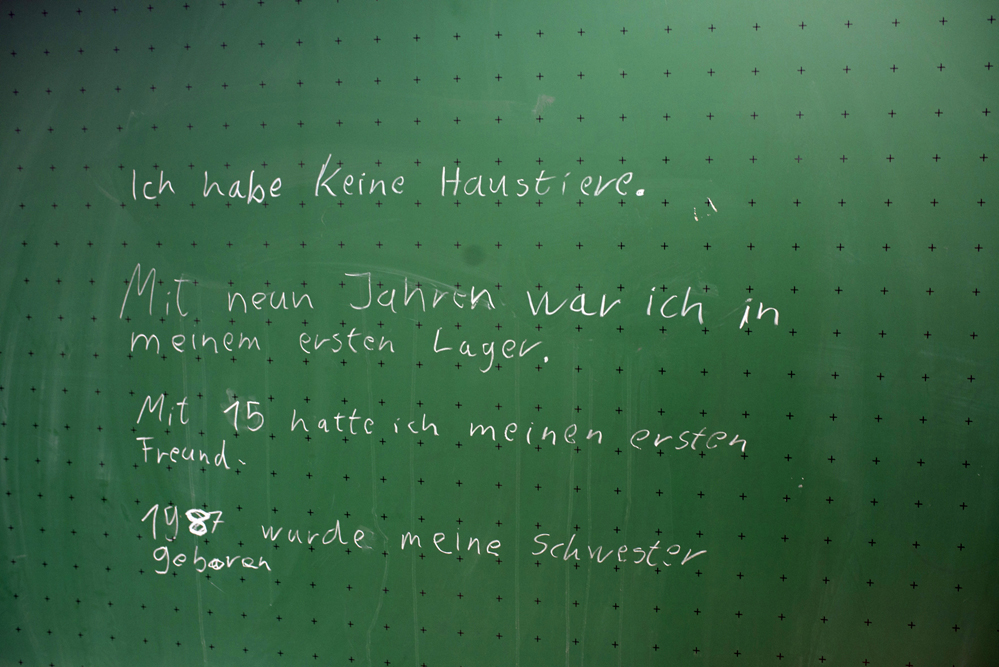 Ich habe Keine Haustiere.
Mit neun Jahren war ich in
meinem ersten Lager.
Mit 15 hatte ich meinen ersten
Freund.
1987 wurde meine Schwester
geboren